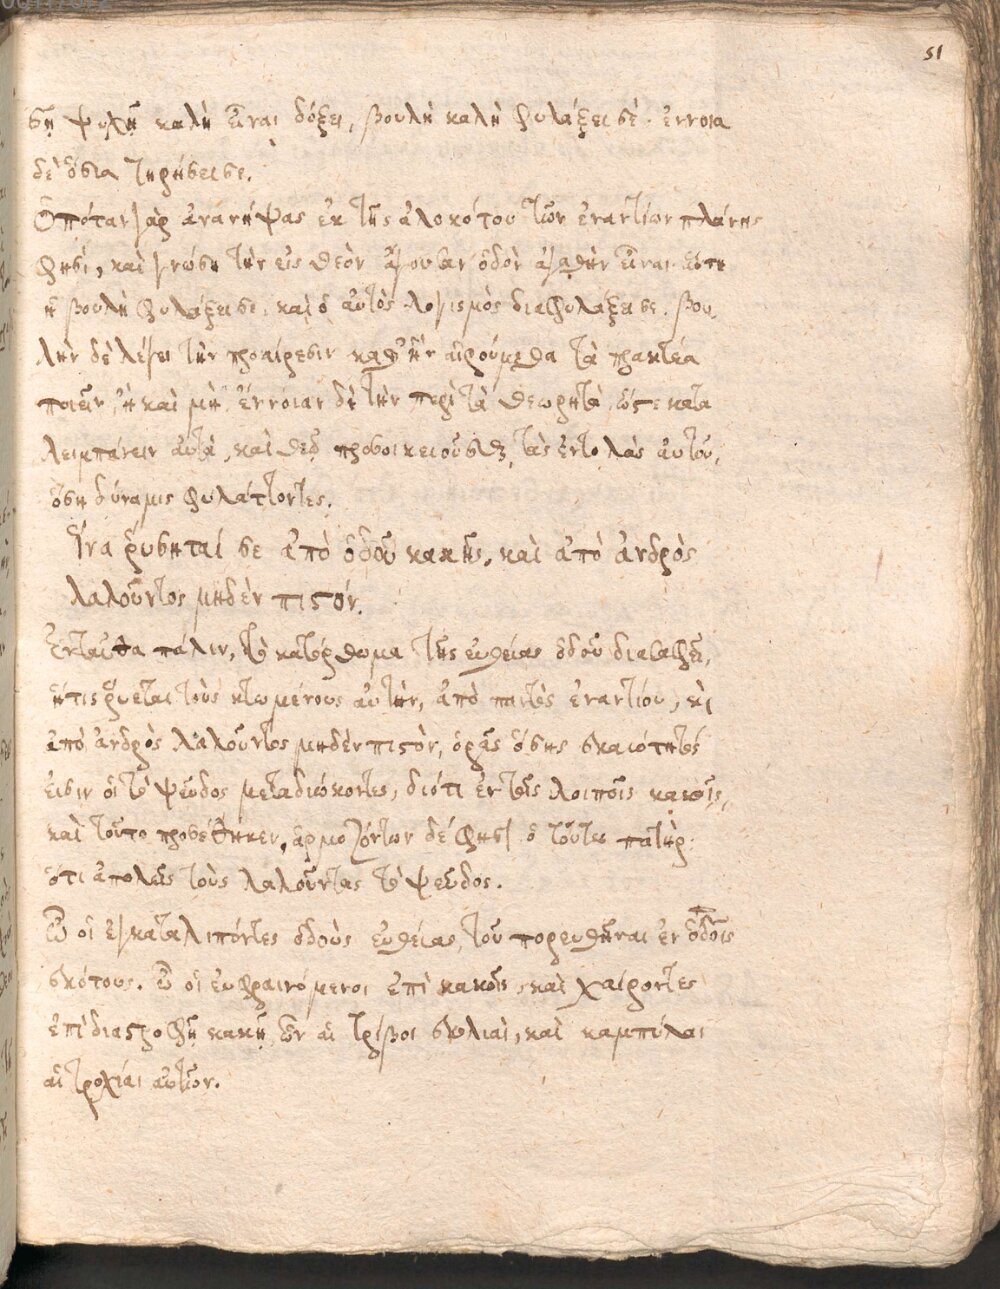 51
σῇ ψυχῇ καλὴ εἶναι δόξει, βουλὴ καλὴ φυλάξει σὲ· ἔννοια
δὲ ὁσία τηρήσει σε.
Ὁπόταν γὰρ ἀνανήψας ἐκ τῆς ἀλοκότου τῶν ἐναντίων πλάνης
φησὶ, καὶ γνώση τὴν εἰς θεὸν ἄγουσαν ὁδὸν ἀγαθὴν εἶναι
ἡ βουλὴ φυλάξει σε, καὶ ὁ αὐτὸς λογισμὸς διαφυλάξει σε. βου
λὴν δὲ λέγει τὴν προαίρεσιν καθ' ἣν αἱρούμεθα τὰ πρακτέα
ποιεῖν, ἢ καὶ μὴ, ἔννοιαν δὲ τὴν περὶ τὰ θεωρητὰ, ὥστε κατα
λειμπάνειν αὐτὰ, καὶ θεῷ προσοικειοῦσθαι, τὰς ἐντολὰς αὐτοῦ,
ὅση δύναμις φυλάττοντες.
Ἵνα ῥύσηταί σε ἀπὸ ὁδοῦ κακῆς, καὶ ἀπὸ ἀνδρὸς
λαλοῦντος μηδὲν πιστόν.
Ἐνταῦθα πάλιν, τὸ κατόρθωμα τῆς εὐθείας ὁδοῦ διασαφεῖ,
ἥτις ῥύεται τοὺς κτωμένους αὐτὴν, ἀπὸ παντὸς ἐναντίου, καὶ
ἀπὸ ἀνδρὸς λαλοῦντος μηδὲν πιστὸν, ὁρᾷς ὅσης σκαιότητός
εἰσιν οἱ τὸ ψεῦδος μεταδιώκοντες, διότι ἐν τοῖς λοιποῖς κακοῖς,
καὶ τοῦτο προσέθηκεν, ἁρμοζόντων δέ φησὶ ὁ τούτου πατὴρ·
ὅτι ἀπολεῖς τοὺς λαλοῦντας τὸ ψεῦδος.
Ὦ οἱ ἐγκαταλιπόντες ὁδοὺς εὐθείας, τοῦ πορευθῆναι ἐν ὁδοῖς
σκότους. ὦ οἱ εὐφραινόμενοι ἐπὶ κακοῖς, καὶ χαίροντες
ἐπὶ διαστροφῇ κακῇ, ὧν αἱ τρίβοι σκολιαὶ, καὶ καμπύλαι
αἱ τροχίαι αὐτῶν.